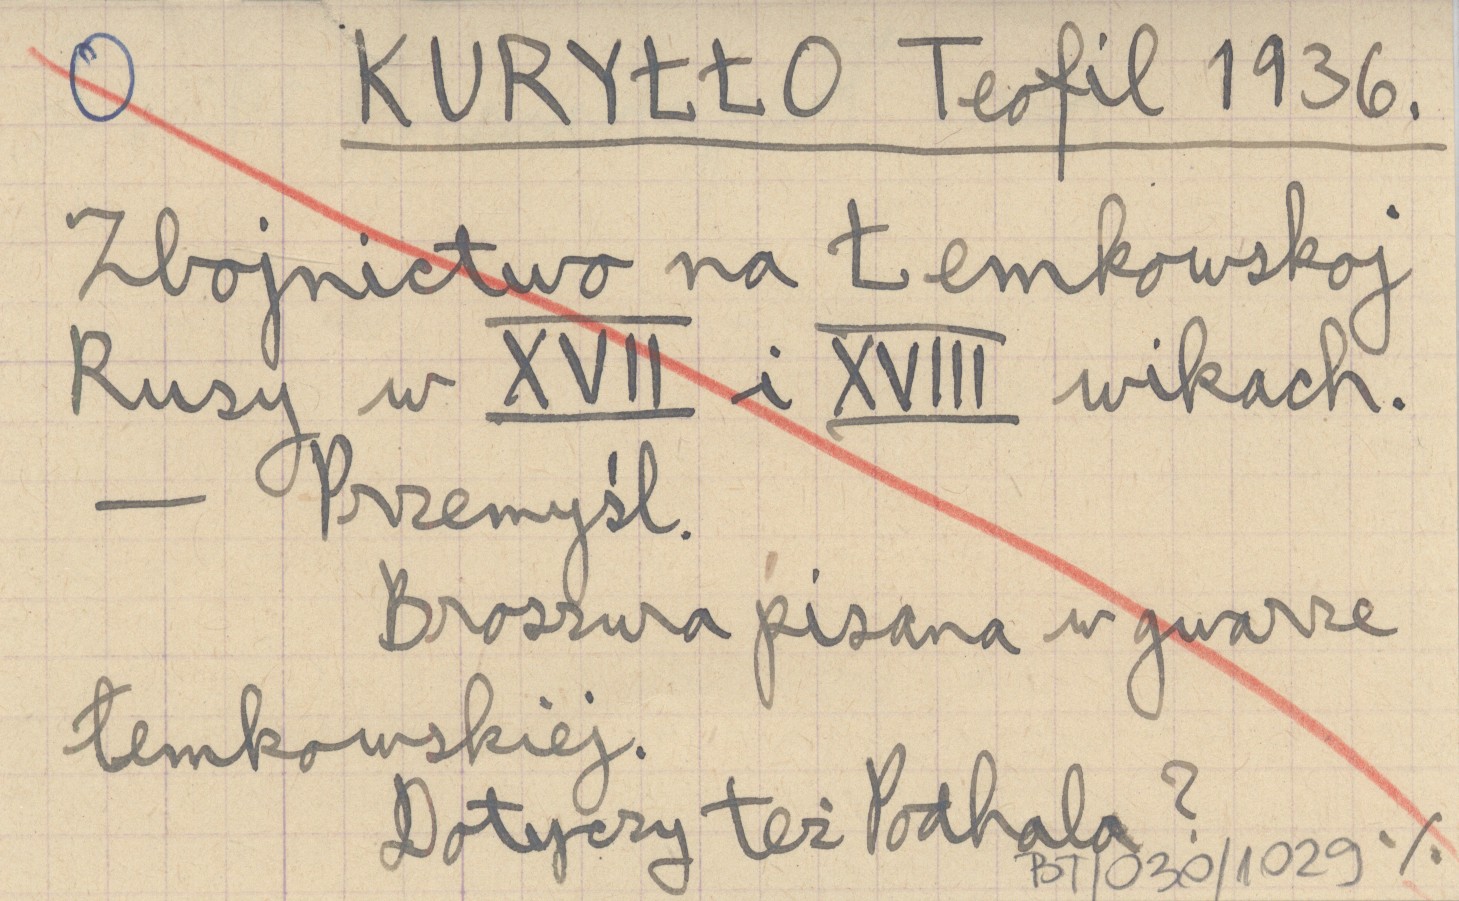 KURYŁŁO Teofil 1936.
Zbojnictwo na Łemkowskoj
Rusy w XVII i XVIII wikach.
— Przemyśl.
Broszura pisana w gwarze
łemkowskiej.
Dotyczy też Podhala?
BT/030/1029 ·/.